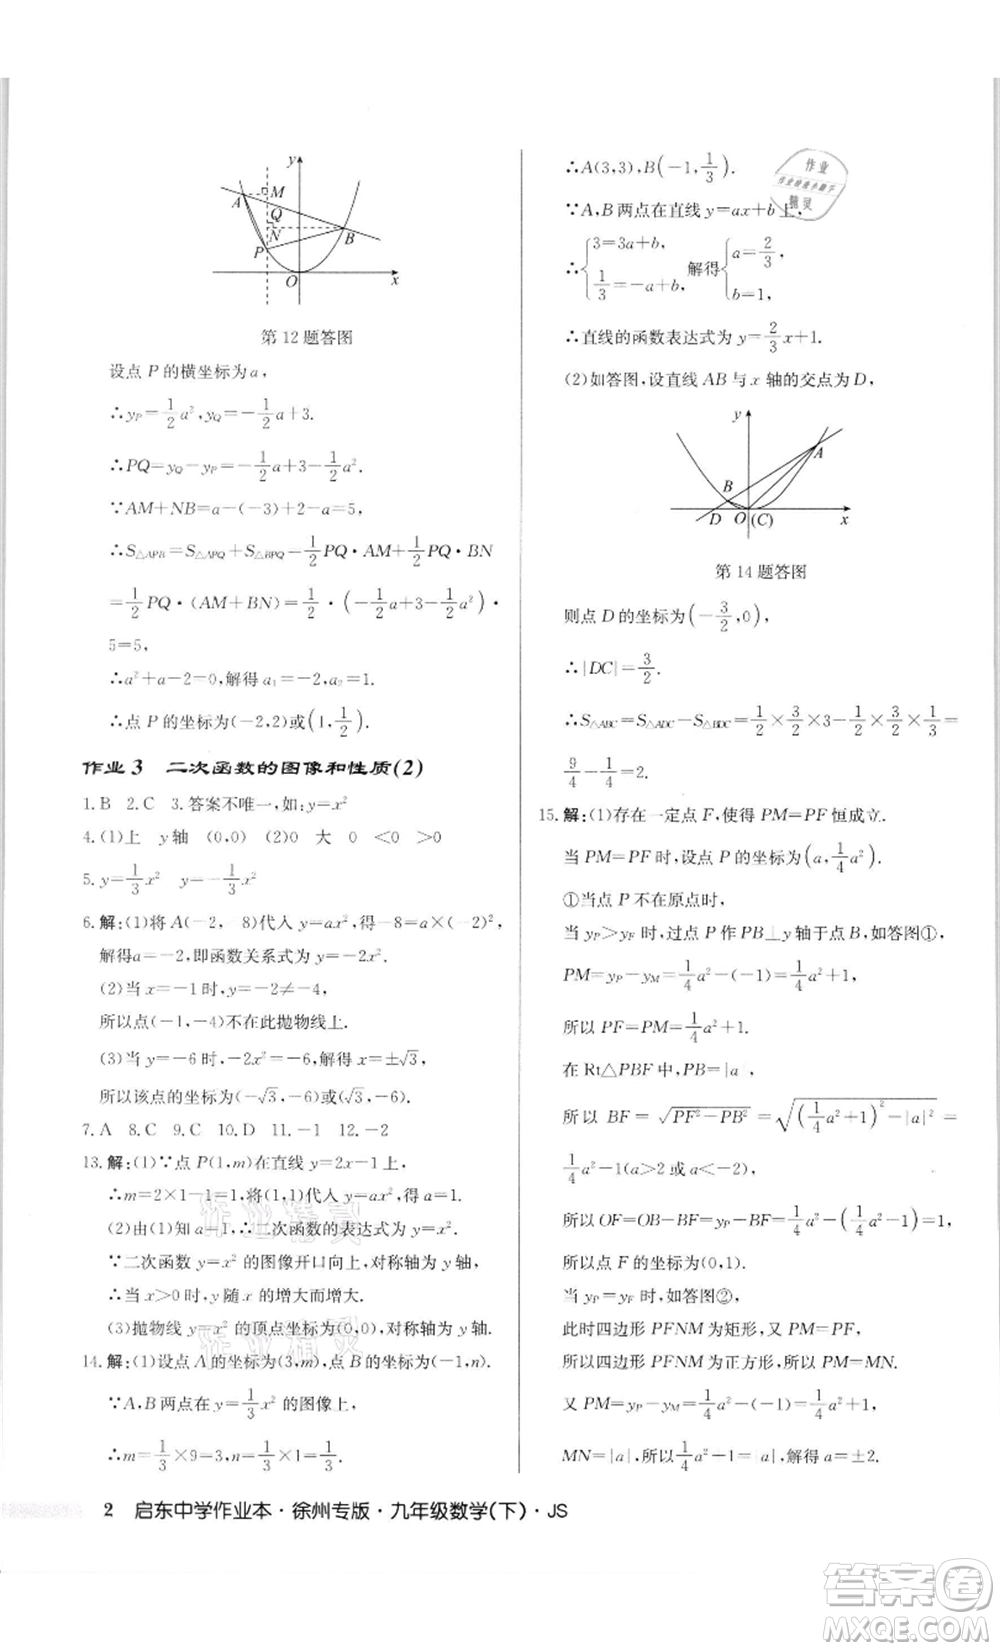 y
A
M
Q
N
B
P
O
x
第12题答图
设点 P 的横坐标为 a，
∴y_P=1/2a²，y_Q=-1/2a+3.
∴PQ=y_Q-y_P=-1/2a+3-1/2a².
∵AM+NB=a-(-3)+2-a=5,
∴S△APB=S△APQ+S△BPQ=1/2PQ·AM+1/2PQ·BN
=1/2PQ·(AM+BN)=1/2·(-1/2a²-1/2a+3)·
5=5,
∴a²+a-2=0,解得 a₁=-2,a₂=1.
∴点 P 的坐标为(-2,2)或(1,1/2).
作业 3 二次函数的图像和性质(2)
1.B 2.C 3.答案不唯一,如:y=x²
4.(1)上 y轴 (0,0) (2)0 大 0 <0 >0
5.y=1/3x² y=-1/3x²
6.解:(1)将 A(-2, 8)代入 y=ax²,得-8=a×(-2)²,
解得a=-2,即函数关系式为 y=-2x².
(2)当 x=-1时,y=-2≠-4,
所以点(-1,-4)不在此抛物线上.
(3)当 y=-6 时,-2x²=-6,解得 x=±√3,
所以该点的坐标为(-√3,-6)或(√3,-6).
7.A 8.C 9.C 10.D 11.-1 12.-2
13.解:(1)∵点 P(1,m)在直线 y=2x-1上,
∴m=2×1-1=1,将(1,1)代入 y=ax²,得 a=1.
(2)由(1)知 a=1,∴二次函数的表达式为 y=x².
∵二次函数 y=x² 的图像开口向上,对称轴为 y 轴,
∴当 x>0 时,y 随 x 的增大而增大.
(3)抛物线 y=x² 的顶点坐标为(0,0),对称轴为 y 轴.
14.解:(1)设点 A 的坐标为(3,m),点 B 的坐标为(-1,n).
∵A,B两点在 y=1/3x² 的图像上,
∴m=1/3×9=3,n=1/3×1=1/3,
∴A(3,3),B(-1,1/3).
∵A,B 两点在直线 y=ax+b 上,
∴{3=3a+b, 1/3=-a+b, 解得{a=2/3, b=1,
∴直线的函数表达式为 y=2/3x+1.
(2)如答图,设直线 AB 与 x 轴的交点为 D,
y
A
B
D
O
(C)
x
第14题答图
则点 D 的坐标为(-3/2,0),
∴|DC|=3/2.
∴S△ABC=S△ADC-S△BDC=1/2×3/2×3-1/2×3/2×1/3=
9/4-1/4=2.
15.解:(1)存在一定点 F,使得 PM=PF 恒成立.
当 PM=PF 时,设点 P 的坐标为(a,1/4a²).
①当点 P 不在原点时,
当 y_P>y_F 时,过点 P 作 PB⊥y 轴于点 B,如答图①,
PM=y_P-y_M=1/4a²-(-1)=1/4a²+1,
所以 PF=PM=1/4a²+1.
在 Rt△PBF 中,PB=|a|,
所以 BF=√(PF²-PB²)=√((1/4a²+1)²-|a|²)=
1/4a²-1(a>2 或 a<-2),
所以 OF=OB-BF=1/4a²-(1/4a²-1)=1,
所以点 F 的坐标为(0,1).
当 y_P=y_F 时,如答图②,
此时四边形 PFNM 为矩形,又 PM=PF,
所以四边形 PFNM 为正方形,所以 PM=MN.
又 PM=y_P-y_M=1/4a²-(-1)=1/4a²+1,
MN=|a|,所以1/4a²+1=|a|,解得 a=±2.
2 启东中学作业本·徐州专版·九年级数学(下)·JS
作业
精灵
作业精灵
作业精灵
答案圈
MXQE.COM